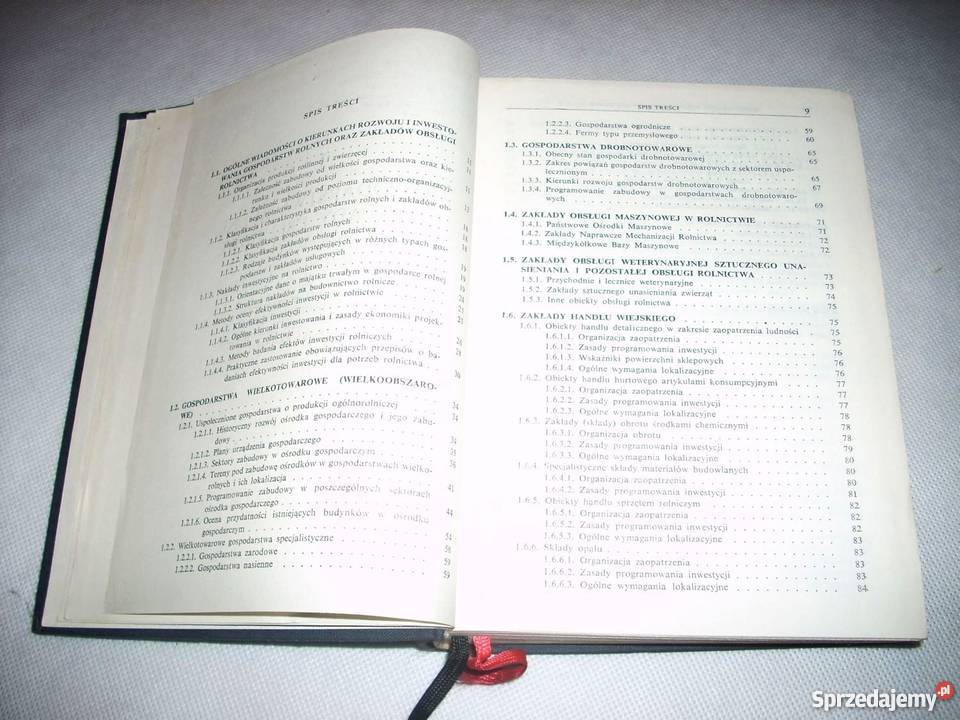 SPIS TREŚCI
1.1. OGÓLNE WIADOMOŚCI O KIERUNKACH ROZWOJU I INWESTO-
WANIA GOSPODARSTW ROLNYCH ORAZ ZAKŁADÓW OBSŁUGI
ROLNICTWA
1.1.1. Organizacja produkcji roślinnej i zwierzęcej 11
1.1.1.1. Zależność zabudowy od wielkości gospodarstwa oraz kie-
runku i wielkości produkcji
1.1.1.2. Zależność zabudowy od poziomu techniczno-organizacyj-
nego rolnictwa
1.1.2. Klasyfikacja i charakterystyka gospodarstw rolnych i zakładów ob-
sługi rolnictwa
1.1.2.1. Klasyfikacja gospodarstw rolnych
1.1.2.2. Klasyfikacja zakładów obsługi rolnictwa
1.1.2.3. Rodzaje budynków występujących w różnych typach gos-
podarstw i zakładów usługowych
1.1.3. Nakłady inwestycyjne na rolnictwo 19
1.1.3.1. Orientacyjne dane o majątku trwałym w gospodarce rolnej 19
1.1.3.2. Struktura nakładów na budownictwo rolnicze
1.1.4. Metody oceny efektywności inwestycji w rolnictwie
1.1.4.1. Klasyfikacja inwestycji
1.1.4.2. Ogólne kierunki inwestowania i zasady ekonomiki projek-
towania w rolnictwie
1.1.4.3. Metody badania efektów inwestycji rolniczych
1.1.4.4. Praktyczne zastosowanie obowiązujących przepisów o ba-
daniach efektywności inwestycji dla potrzeb rolnictwa 30
1.2. GOSPODARSTWA WIELKOTOWAROWE (WIELKOOBSZARO-
WE) 34
1.2.1. Uspołecznione gospodarstwa o produkcji ogólnorolniczej 34
1.2.1.1. Historyczny rozwój ośrodka gospodarczego i jego zabu-
dowy 34
1.2.1.2. Plany urządzenia gospodarczego 35
1.2.1.3. Sektory zabudowy w ośrodku gospodarczym 36
1.2.1.4. Tereny pod zabudowę ośrodków w gospodarstwach wielko-
rolnych i ich lokalizacja 41
1.2.1.5. Programowanie zabudowy w poszczególnych sektorach
ośrodka gospodarczego 44
1.2.1.6. Ocena przydatności istniejących budynków w ośrodku
gospodarczym 54
1.2.2. Wielkotowarowe gospodarstwa specjalistyczne 58
1.2.2.1. Gospodarstwa zarodowe 59
1.2.2.2. Gospodarstwa nasienne 59
SPIS TREŚCI 9
1.2.2.3. Gospodarstwa ogrodnicze 59
1.2.2.4. Fermy typu przemysłowego 60
1.3. GOSPODARSTWA DROBNOTOWAROWE 65
1.3.1. Obecny stan gospodarki drobnotowarowej 65
1.3.2. Zakres powiązań gospodarstw drobnotowarowych z sektorem uspo-
łecznionym 65
1.3.3. Kierunki rozwoju gospodarstw drobnotowarowych 67
1.3.4. Programowanie zabudowy w gospodarstwach drobnotowaro-
wych 69
1.4. ZAKŁADY OBSŁUGI MASZYNOWEJ W ROLNICTWIE 71
1.4.1. Państwowe Ośrodki Maszynowe 71
1.4.2. Zakłady Naprawcze Mechanizacji Rolnictwa 72
1.4.3. Międzykółkowe Bazy Maszynowe 72
1.5. ZAKŁADY OBSŁUGI WETERYNARYJNEJ SZTUCZNEGO UNA-
SIENIANIA I POZOSTAŁEJ OBSŁUGI ROLNICTWA 73
1.5.1. Przychodnie i lecznice weterynaryjne 73
1.5.2. Zakłady sztucznego unasieniania zwierząt 74
1.5.3. Inne obiekty obsługi rolnictwa 75
1.6. ZAKŁADY HANDLU WIEJSKIEGO 75
1.6.1. Obiekty handlu detalicznego w zakresie zaopatrzenia ludności 75
1.6.1.1. Organizacja zaopatrzenia 75
1.6.1.2. Zasady programowania inwestycji 76
1.6.1.3. Wskaźniki powierzchni sklepowych 76
1.6.1.4. Ogólne wymagania lokalizacyjne 76
1.6.2. Obiekty handlu hurtowego artykułami konsumpcyjnymi 77
1.6.2.1. Organizacja zaopatrzenia 77
1.6.2.2. Zasady programowania inwestycji 77
1.6.2.3. Ogólne wymagania lokalizacyjne 78
1.6.3. Zakłady (składy) obrotu środkami chemicznymi 78
1.6.3.1. Organizacja obrotu 78
1.6.3.2. Zasady programowania inwestycji 79
1.6.3.3. Ogólne wymagania lokalizacyjne 80
1.6.4. Specjalistyczne składy materiałów budowlanych 80
1.6.4.1. Organizacja zaopatrzenia 80
1.6.4.2. Zasady programowania inwestycji 81
1.6.5. Obiekty handlu sprzętem rolniczym 82
1.6.5.1. Organizacja zaopatrzenia 82
1.6.5.2. Zasady programowania inwestycji 82
1.6.5.3. Ogólne wymagania lokalizacyjne 83
1.6.6. Składy opału 83
1.6.6.1. Organizacja zaopatrzenia 83
1.6.6.2. Zasady programowania inwestycji 83
1.6.6.3. Ogólne wymagania lokalizacyjne 84
Sprzedajemy.pl